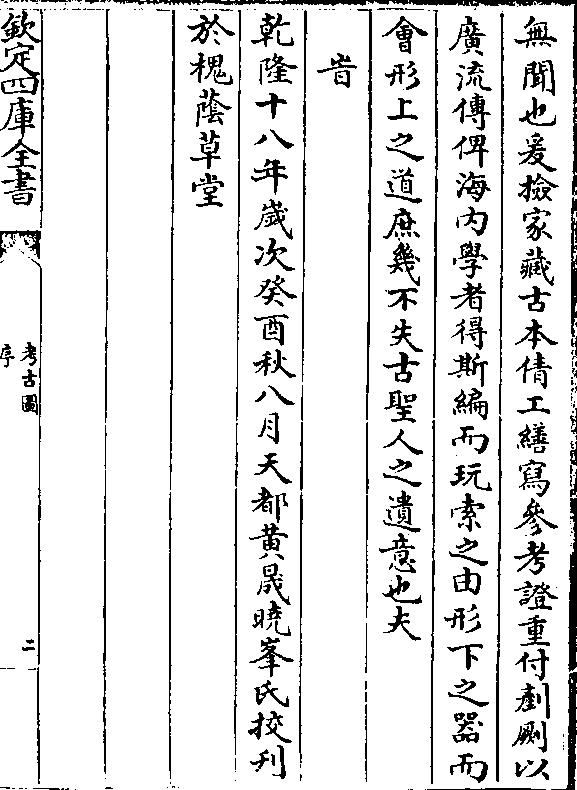 無聞也爰檢家藏古本倩工繕寫參考證重付剞劂以
廣流傳俾海内學者得斯編而玩索之由形下之器而
會形上之道庶幾不失古聖人之遺意也夫
旹
乾隆十八年歲次癸酉秋八月天都黄晟曉峯氏挍刋
於槐蔭草堂
欽定四庫全書
考古圖
序
二